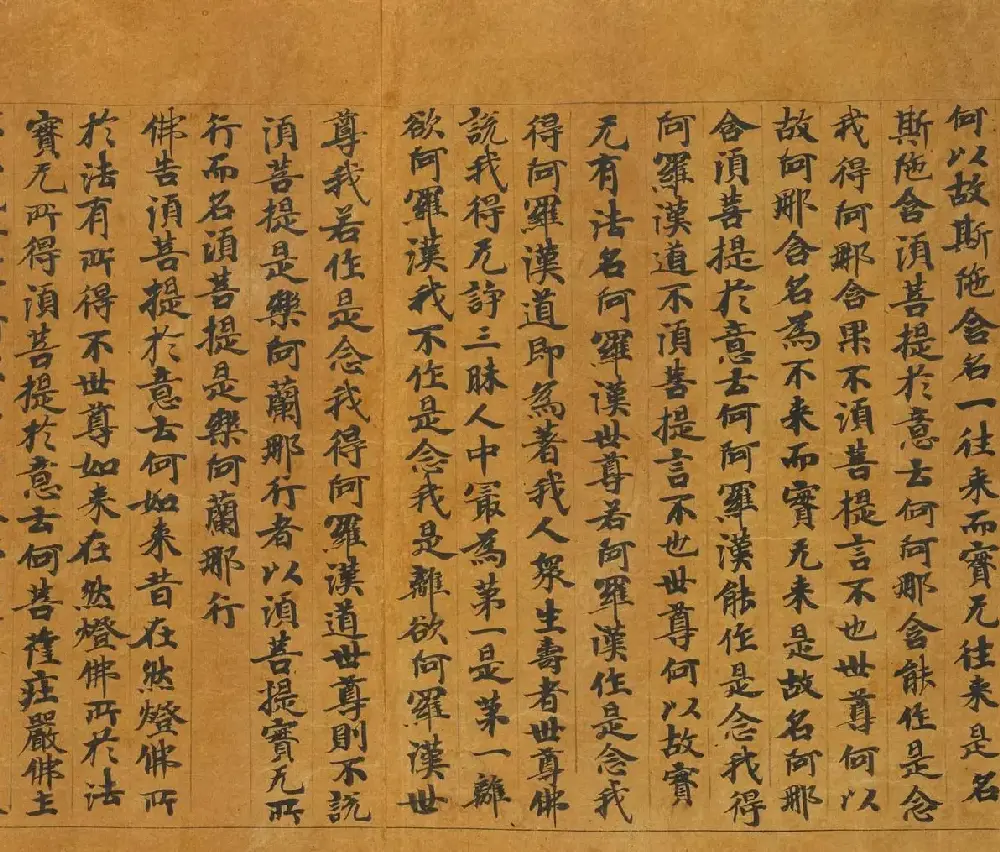 何以故斯陁含名一往来而實无往来是名
斯陁含須菩提於意云何阿那含能作是念
我得阿那含果不須菩提言不也世尊何以
故阿那含名為不来而實无来是故名阿那
含須菩提於意云何阿羅漢能作是念我得
阿羅漢道不須菩提言不也世尊何以故實
无有法名阿羅漢世尊若阿羅漢作是念我
得阿羅漢道即為著我人衆生壽者世尊佛
說我得无諍三昧人中冣為第一是第一離
欲阿羅漢我不作是念我是離欲阿羅漢世
尊我若作是念我得阿羅漢道世尊則不說
須菩提是樂阿蘭那行者以須菩提實无所
行而名須菩提是樂阿蘭那行
佛告須菩提於意云何如来昔在然燈佛所
於法有所得不世尊如来在然燈佛所於法
實无所得須菩提於意云何菩薩庄嚴佛土